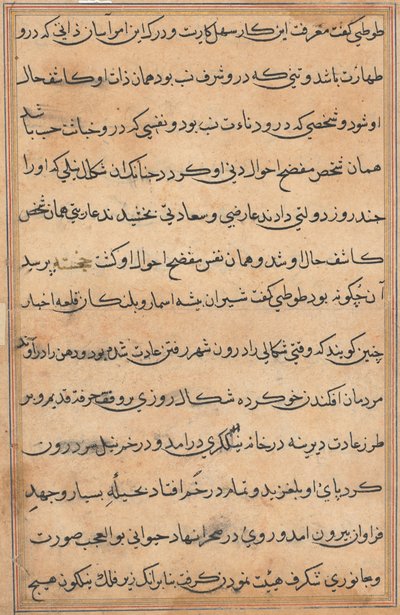 طوطی گفت معرفت این کار سهل کاریست و درک این امر آسان ذاتی که درو
طهارت باشد و تنی که درو شرف نسب بود همان ذات او کاشف حال
او شود و شخصی که درو دناءت نسب بود و نفسی که درو خباثت حسب باشد
همان شخص مفضح احوال دنی او کردد چنانکه ان شکال نیلی که او را
چند روز دولتی دادند عارضی و سعادتی بخشیدند عاریتی همان شخص
کاشف حال او شد و همان نفس مفضح احوال او کشت خجسته پرسید
آن چکونه بود طوطی کفت شیران بیشه اسمار و پلنکان قلعه اخبار
چنین کویند که وقتی شکالی را درون شهر رفتن عادت شده بود و دهن را در آوند
مردمان افکندن خو کرده شکال روزی بر وفق حرفة قدیم و بر
طرز عادت دیرینه در خانه نیلکری درامد و در خم نیل سر درون
کرد پای او بلغزید و تمام در خم افتاد بحیلهٔ بسیار و جهد
فراوان بیرون امد و روی در صحرا نهاد حیوانی بو العجب صورت
و جانوری شکرف هیئت نمودن کرفت بنابر انک زیر فلک نیلکون هیچ